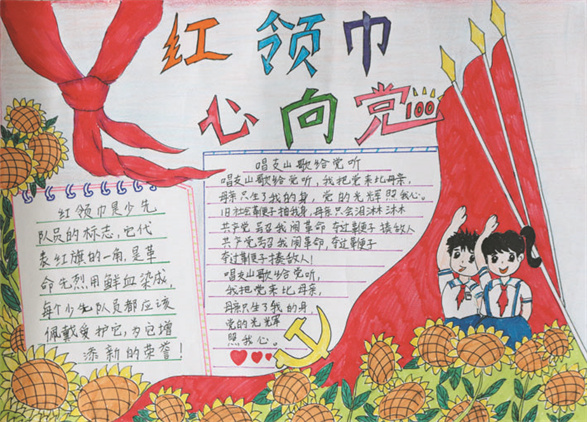 红领巾
心向党100
红领巾是少先
队员的标志,它代
表红旗的一角,是革
命先烈用鲜血染成,
每个少先队员都应该
佩戴爱护它,为它增
添新的荣誉!
唱支山歌给党听
唱支山歌给党听,我把党来比母亲,
母亲只生了我的身,党的光辉照我心。
旧社会鞭子抽我身,母亲只会泪淋淋
共产党号召闹革命 夺过鞭子揍敌人
共产党号召闹革命,夺过鞭子
夺过鞭子揍敌人!
唱支山歌给党听,
我把党来比母亲,
母亲只生了我的身
党的光辉
照我心。